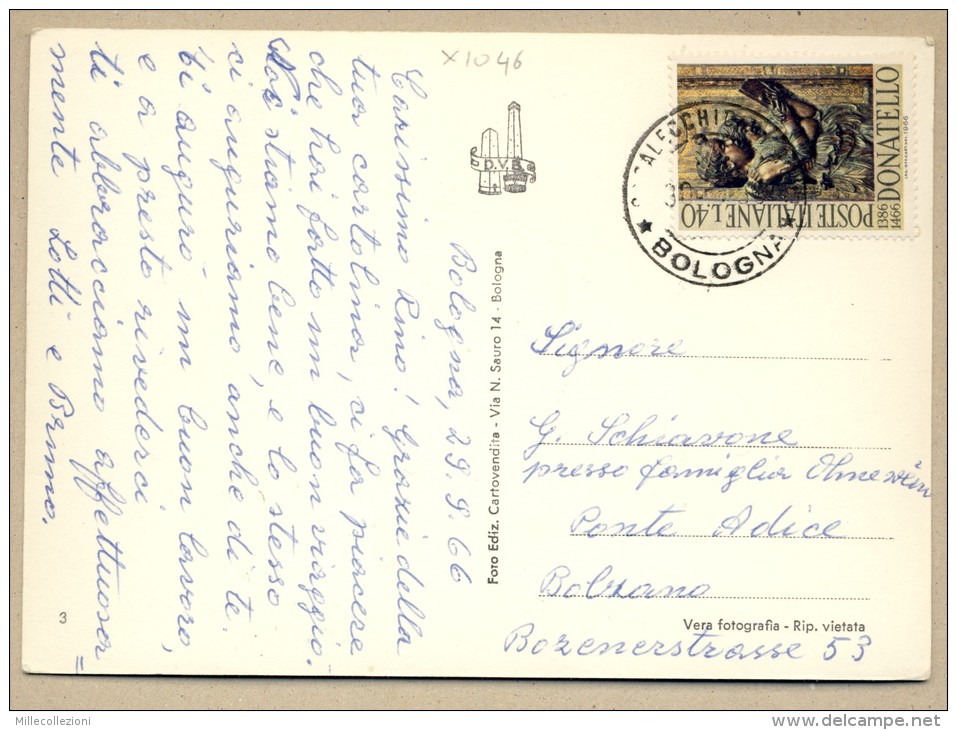 X1046
Bologna, 29.9.66
Carissimo Rino! Grazie della
tua cartolina, ci fa piacere
che hai fatto un buon viaggio.
Noi stiamo bene, e lo stesso
ci auguriamo anche di te.
Ti auguro un buon lavoro,
e a presto rivederci
ti abbracciamo affettuosa=
mente Lotti e Bruno.
D.V.B.
Foto Ediz. Cartovendita - Via N. Sauro 14 - Bologna
POSTE ITALIANE L.40
1386
1466 DONATELLO
BOLOGNA
Signore
G. Schiavone
presso famiglia
Ponte Adice
Bolzano
Bozenerstrasse 53
Vera fotografia - Rip. vietata
3
Millecollezioni
www.delcampe.net